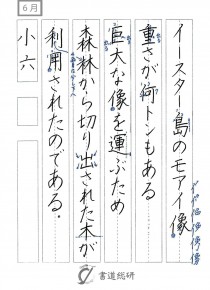 6月
小六
イースター島のモアイ像
重さが何トンもある
巨大な像を運ぶため
森林から切り出された木が
利用されたのである。
書道総研